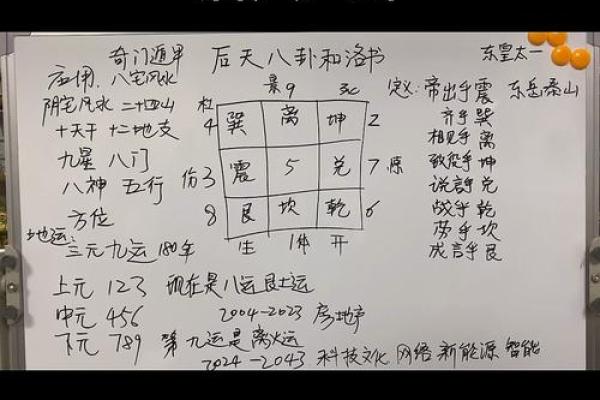 奇门遁甲 后天八卦和洛书 东皇太一
应用: 八宅风水
阴宅风水 二十四山
十天干 十二地支
九星 八门
八神 五行
方位
景9 死
杜4 巽 离 坤 2
伤3 震 5 兑 7
8 艮 坎 乾 6
生 1休 开
定义: 帝出乎震 东岳泰山
齐乎巽
相见乎离
致役乎坤
说言乎兑
战乎乾
劳乎坎
成言乎艮
地运: 三元九运 180年
上元 123 现在是八运艮土运
中元 456 2004-2023 房地产
下元 789 第九运是离火运
2024-2043 科技文化 网络 新能源 智能